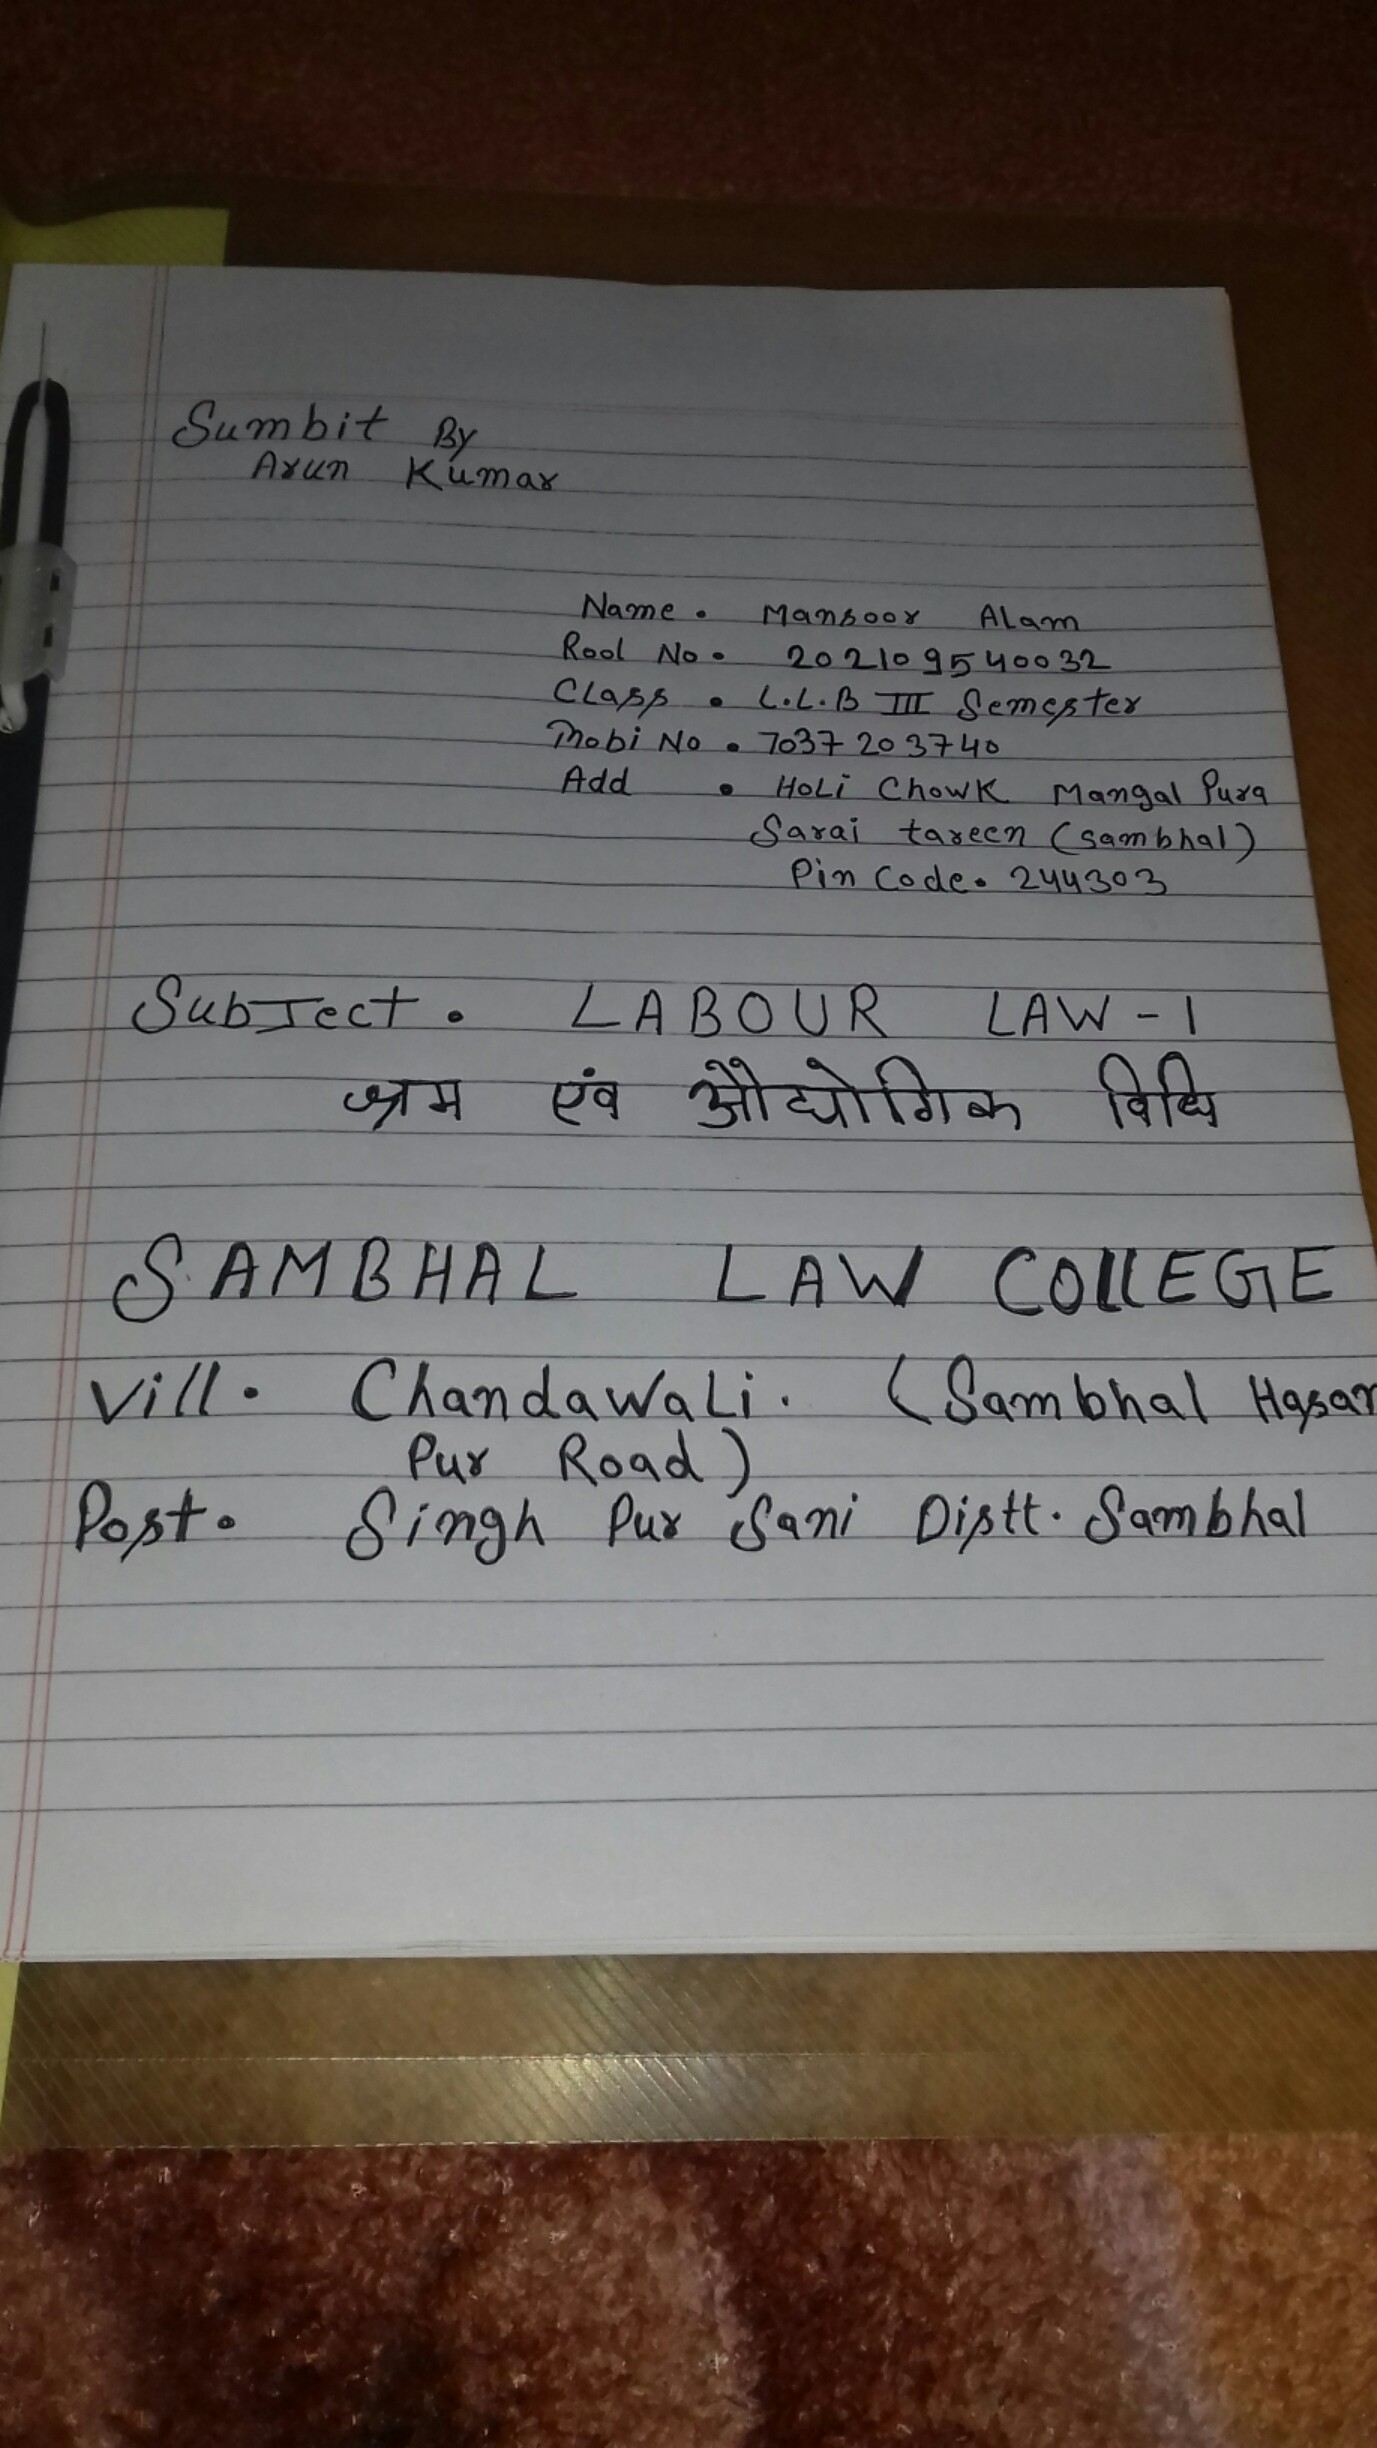 Sumbit By
Arun Kumar
Name. Mansoor Alam
Rool No. 202109540032
Class. L.L.B III Semester
Mobi No. 7037203740
Add. Holi Chowk Mangal Pura
Sarai tareen (Sambhal)
Pin Code. 244303
SubJect. LABOUR LAW-1
श्रम एंव औद्योगिक विधि
SAMBHAL LAW COllEGE
Vill. ChandawaLi. (Sambhal Hasan
Pur Road)
Post. Singh Pur Sani Distt. Sambhal